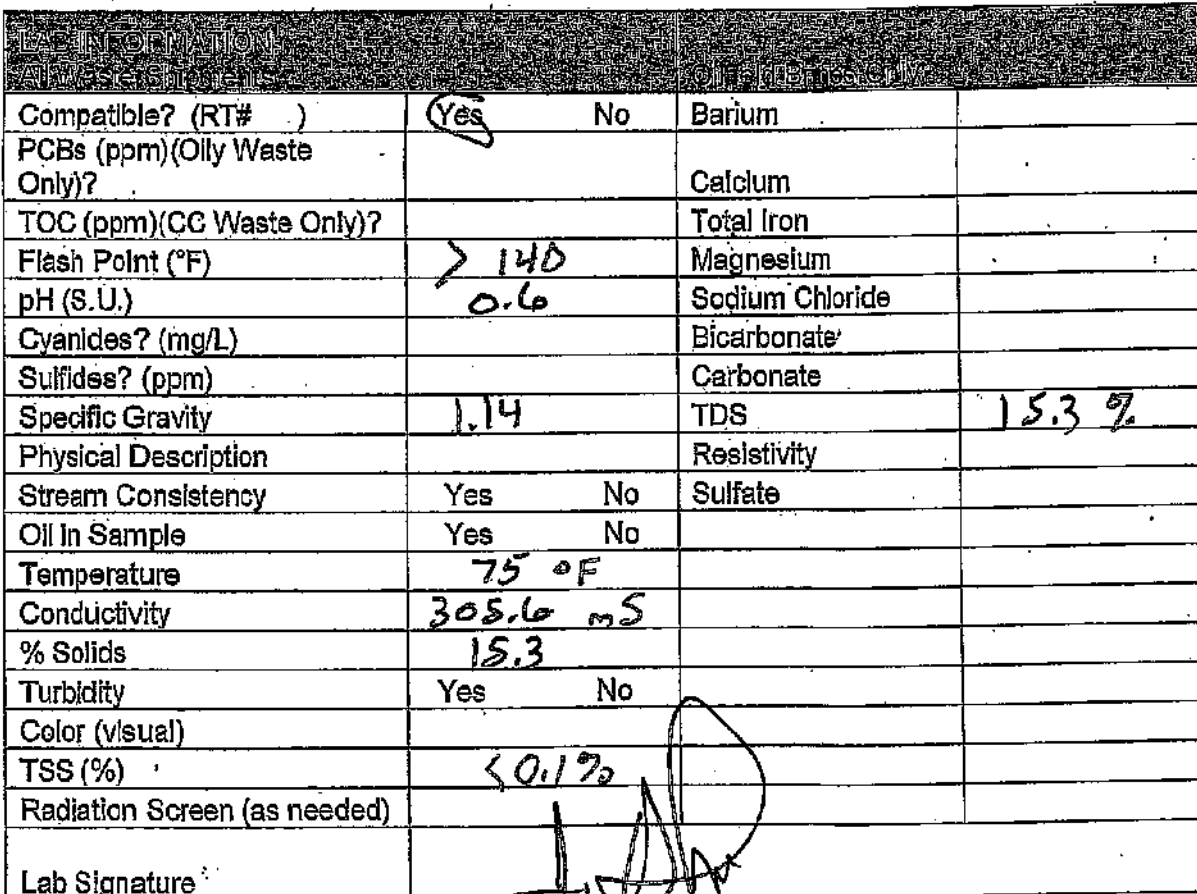 LAB INFORMATION
All Waste Shipments Oil Field Brines Only
Compatible? (RT# ) Yes No Barium
PCBs (ppm)(Oily Waste
Only)? Calcium
TOC (ppm)(CC Waste Only)? Total Iron
Flash Point (°F) > 140 Magnesium
pH (S.U.) 0.6 Sodium Chloride
Cyanides? (mg/L) Bicarbonate
Sulfides? (ppm) Carbonate
Specific Gravity 1.14 TDS 15.3 %
Physical Description Resistivity
Stream Consistency Yes No Sulfate
Oil In Sample Yes No
Temperature 75 °F
Conductivity 305.6 mS
% Solids 15.3
Turbidity Yes No
Color (visual)
TSS (%) <0.1%
Radiation Screen (as needed)
Lab Signature